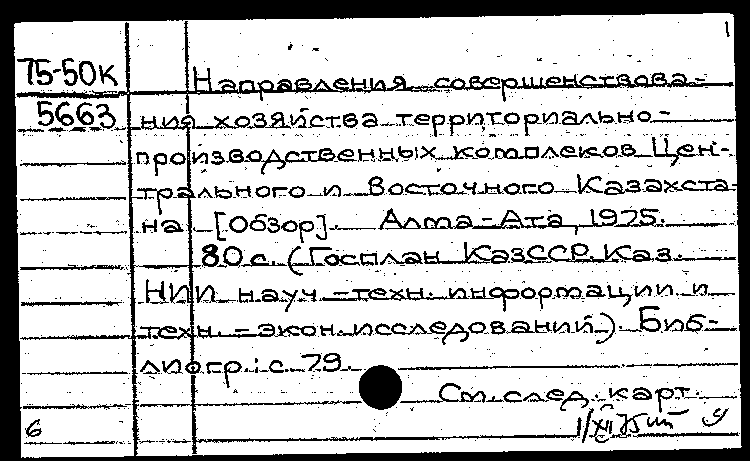 1
75-50К Направления совершенствова-
5663 ния хозяйства территориально-
производственных комплеков Цен-
трального и Восточного Казахста-
на [Обзор]. Алма-Ата, 1975.
80 с. (Госплан КазССР. Каз.
НИИ науч.-техн. информации и
техн.-экон. исследований). Биб-
лиогр.: с. 79.
См. след. карт.
6